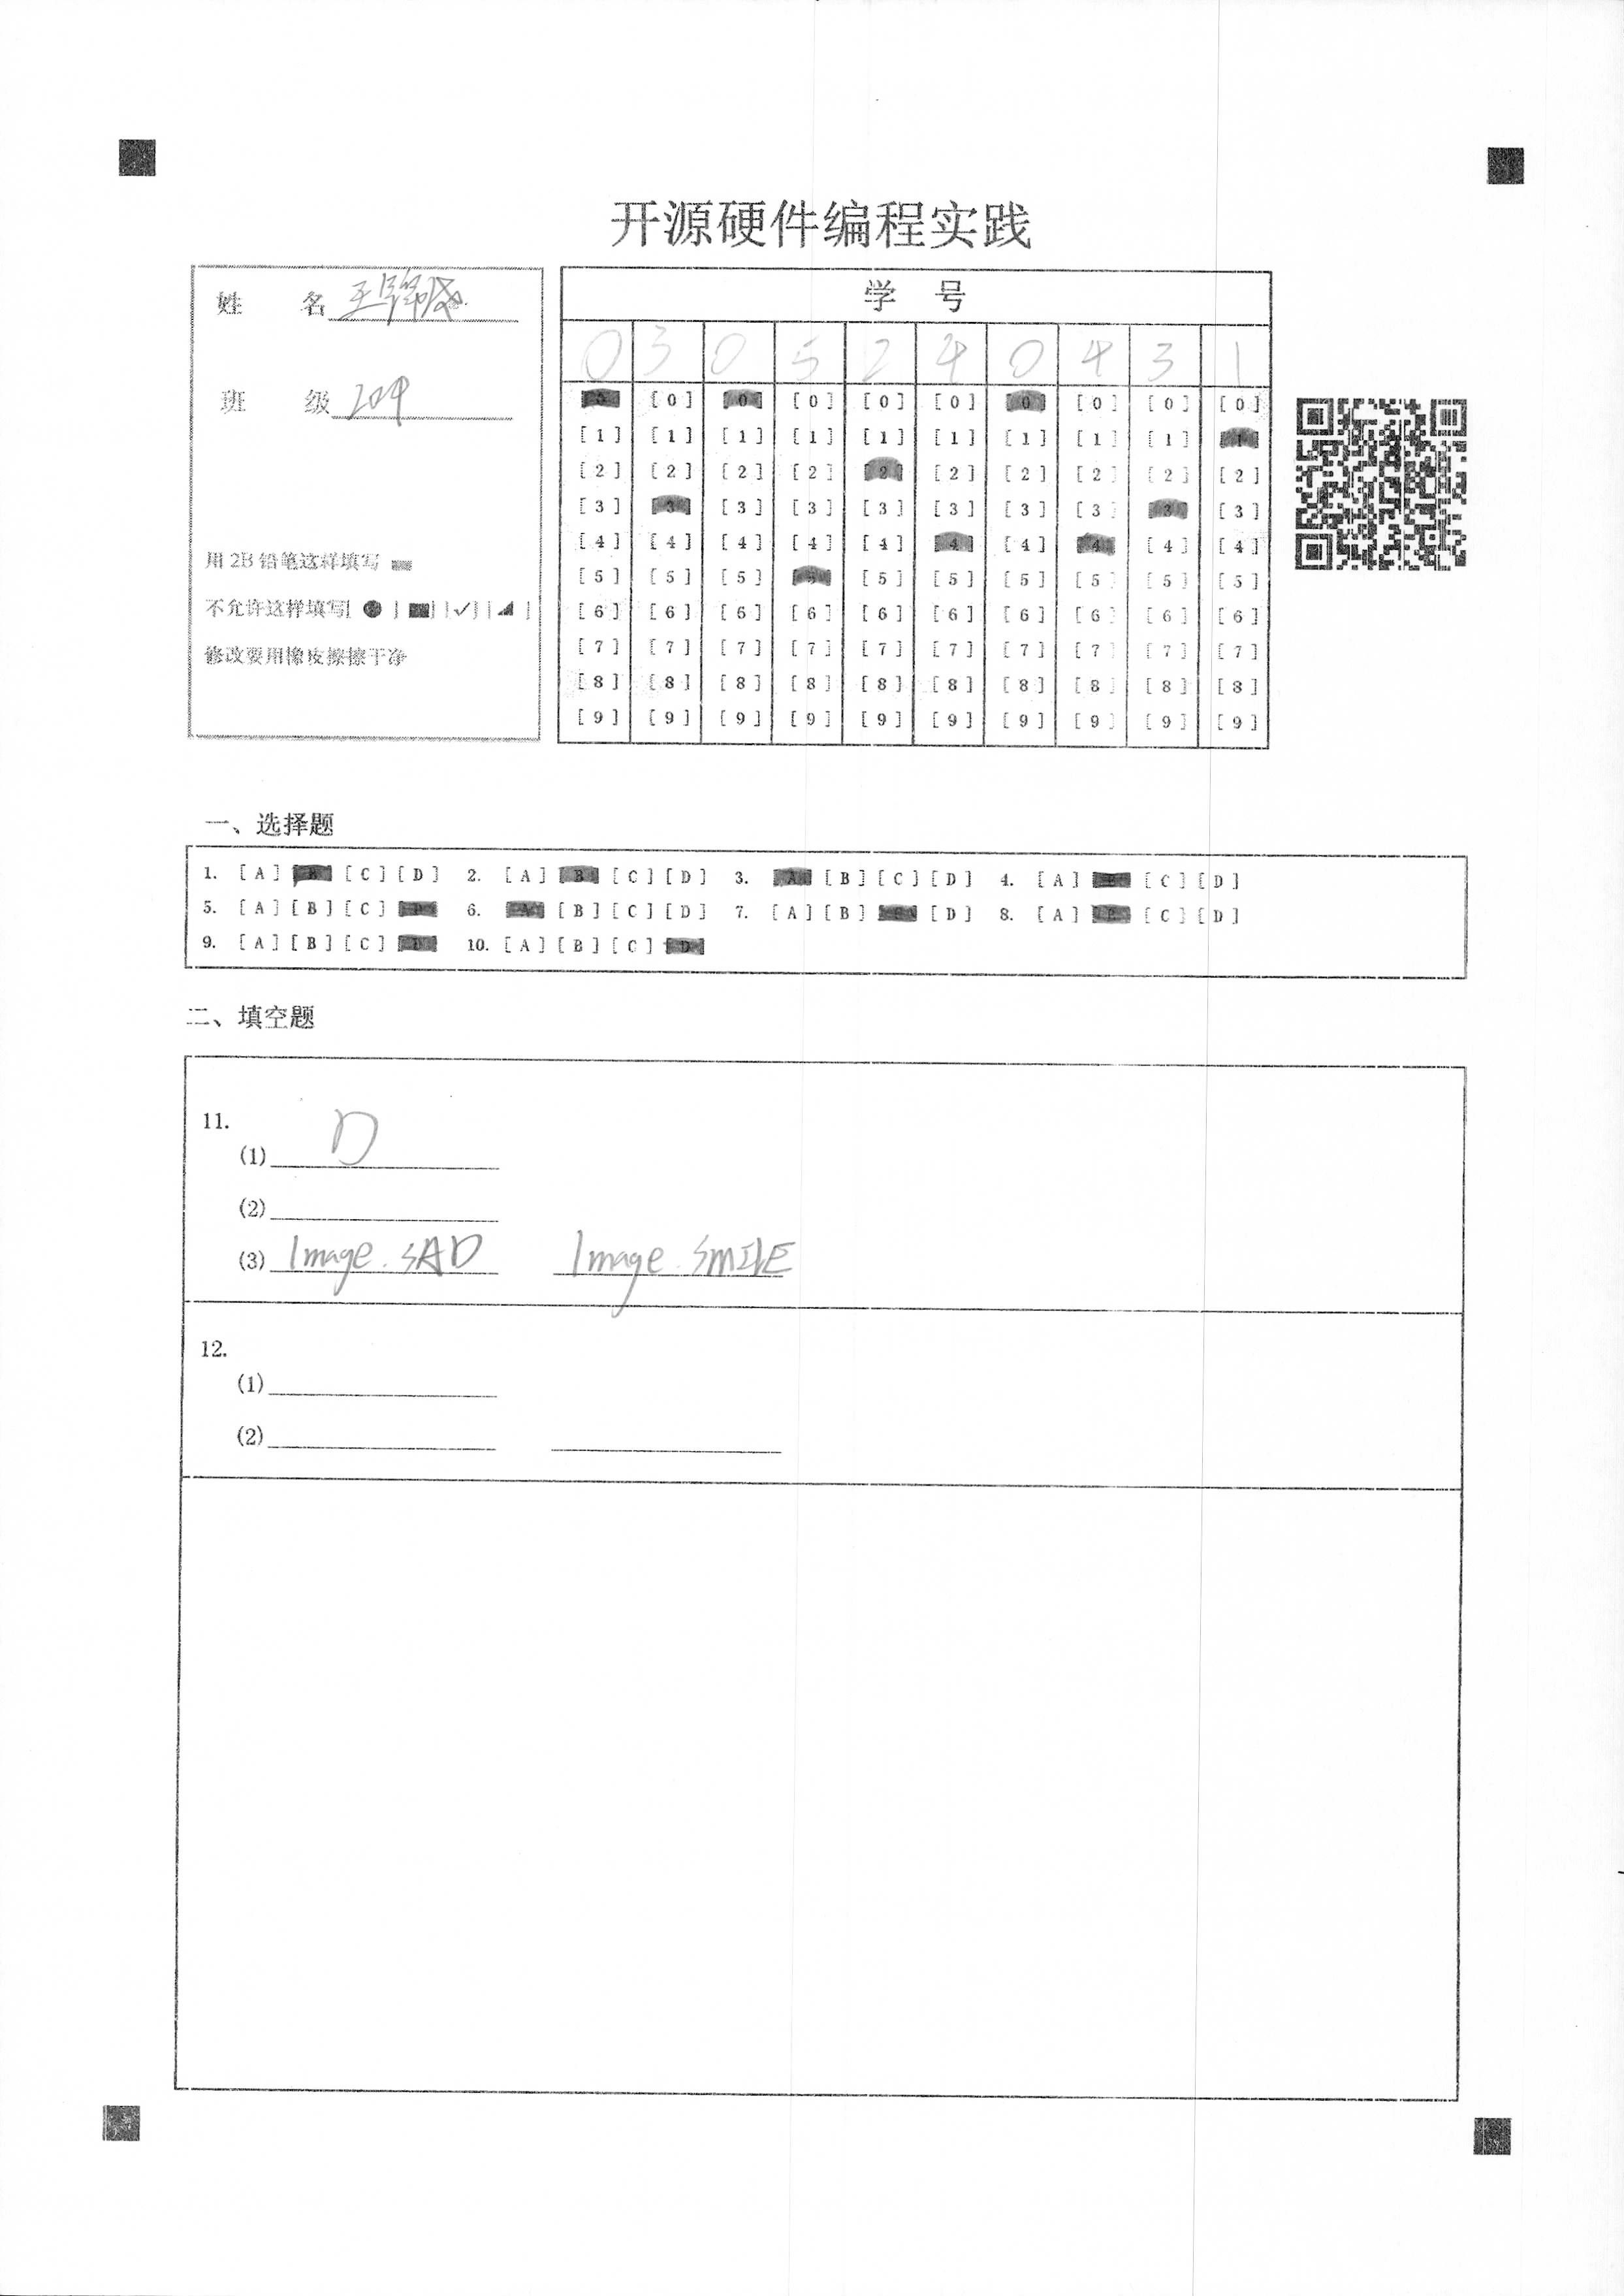 开源硬件编程实践
姓 名 王
班 级 204
用 2B 铅笔这样填写
不允许这样填写[ ● ] [■] [✓] [◢ ]
修改要用橡皮擦擦干净
学 号
0 3 0 5 2 4 0 4 3 1
[0] [0] [0] [0] [0] [0] [0] [0] [0] [0]
[1] [1] [1] [1] [1] [1] [1] [1] [1] [1]
[2] [2] [2] [2] [2] [2] [2] [2] [2] [2]
[3] [3] [3] [3] [3] [3] [3] [3] [3] [3]
[4] [4] [4] [4] [4] [4] [4] [4] [4] [4]
[5] [5] [5] [5] [5] [5] [5] [5] [5] [5]
[6] [6] [6] [6] [6] [6] [6] [6] [6] [6]
[7] [7] [7] [7] [7] [7] [7] [7] [7] [7]
[8] [8] [8] [8] [8] [8] [8] [8] [8] [8]
[9] [9] [9] [9] [9] [9] [9] [9] [9] [9]
一、选择题
1. [A] [B] [C] [D] 2. [A] [B] [C] [D] 3. [A] [B] [C] [D] 4. [A] [B] [C] [D]
5. [A] [B] [C] [D] 6. [A] [B] [C] [D] 7. [A] [B] [C] [D] 8. [A] [B] [C] [D]
9. [A] [B] [C] [D] 10. [A] [B] [C] [D]
二、填空题
11.
(1) D
(2)
(3) Image.SAD Image.SMILE
12.
(1)
(2)